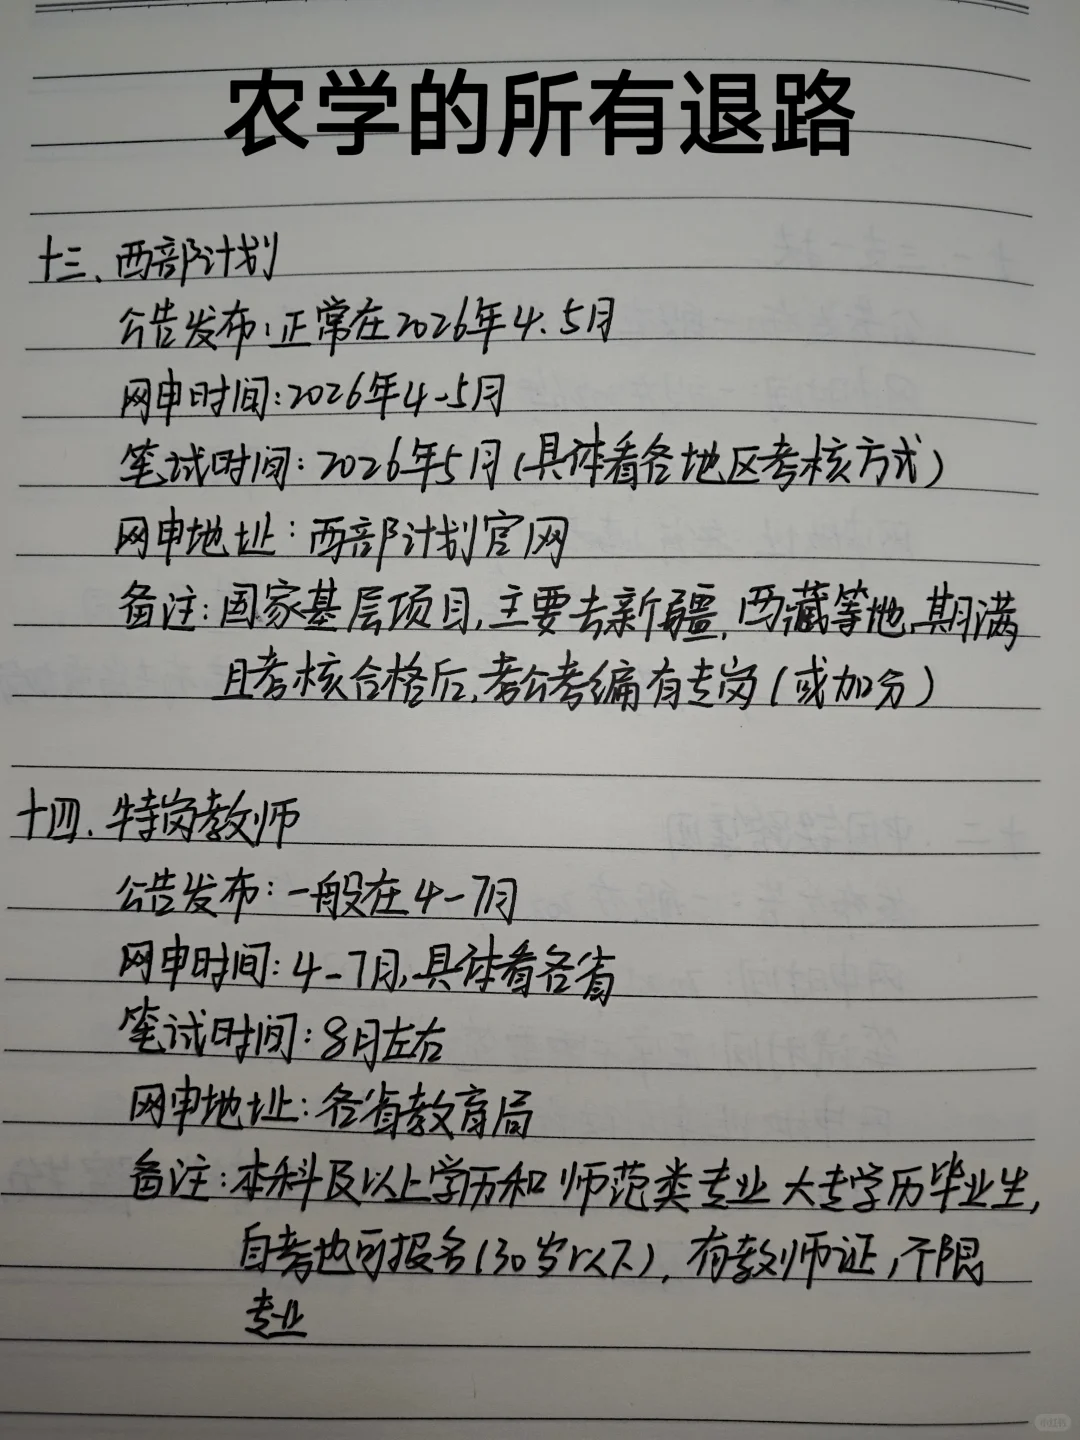 农学的所有退路
十三、西部计划
公告发布:正常在2026年4.5月
网申时间:2026年4-5月
笔试时间:2026年5月(具体看各地区考核方式)
网申地址:西部计划官网
备注:国家基层项目,主要去新疆,西藏等地,期满
且考核合格后,考公考编有专岗(或加分)
十四.特岗教师
公告发布:一般在4-7月
网申时间:4-7月,具体看各省
笔试时间:8月左右
网申地址:各省教育局
备注:本科及以上学历和 师范类专业 大专学历毕业生,
自考也可报名(30岁以下),有教师证,不限
专业
小红书